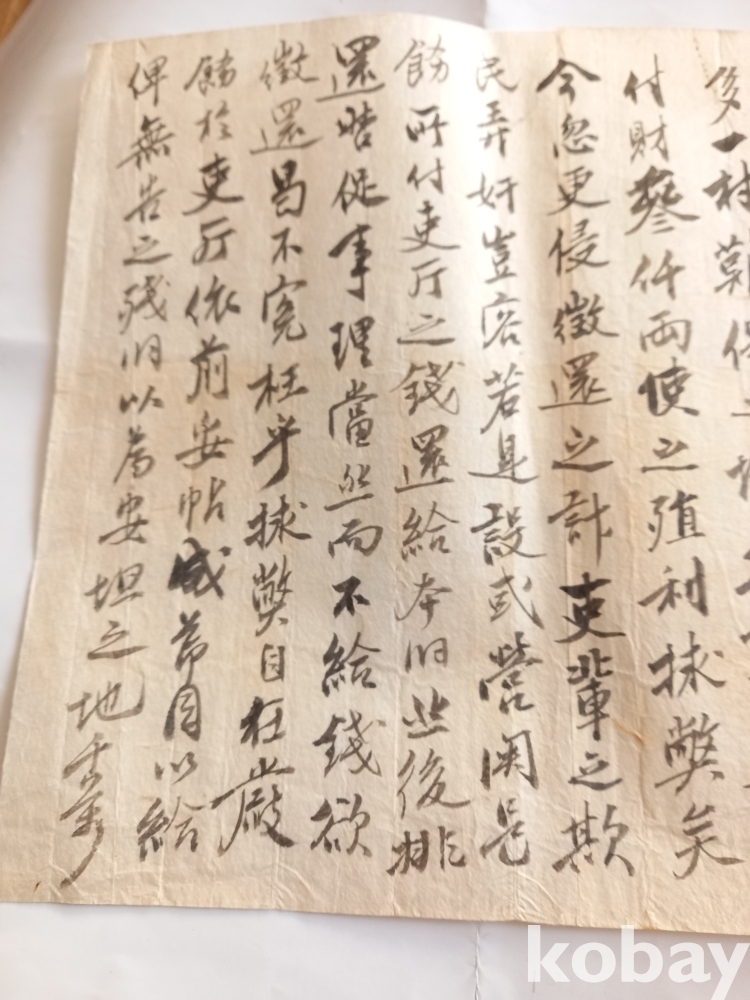 後一村難保
付財參仟兩使之殖利捄獘矣
今忽更侵徵還之計吏輩之欺
民弄奸豈容若是設或營関是
飭所付吏厅之錢還給本洞然後排
還皆從事理當然而不給錢欲
徵還曷不寃枉乎捄獘自在嚴
飭於吏厅依前安帖成节目以給
俾無告之殘洞以爲安坦之地千萬
kobay